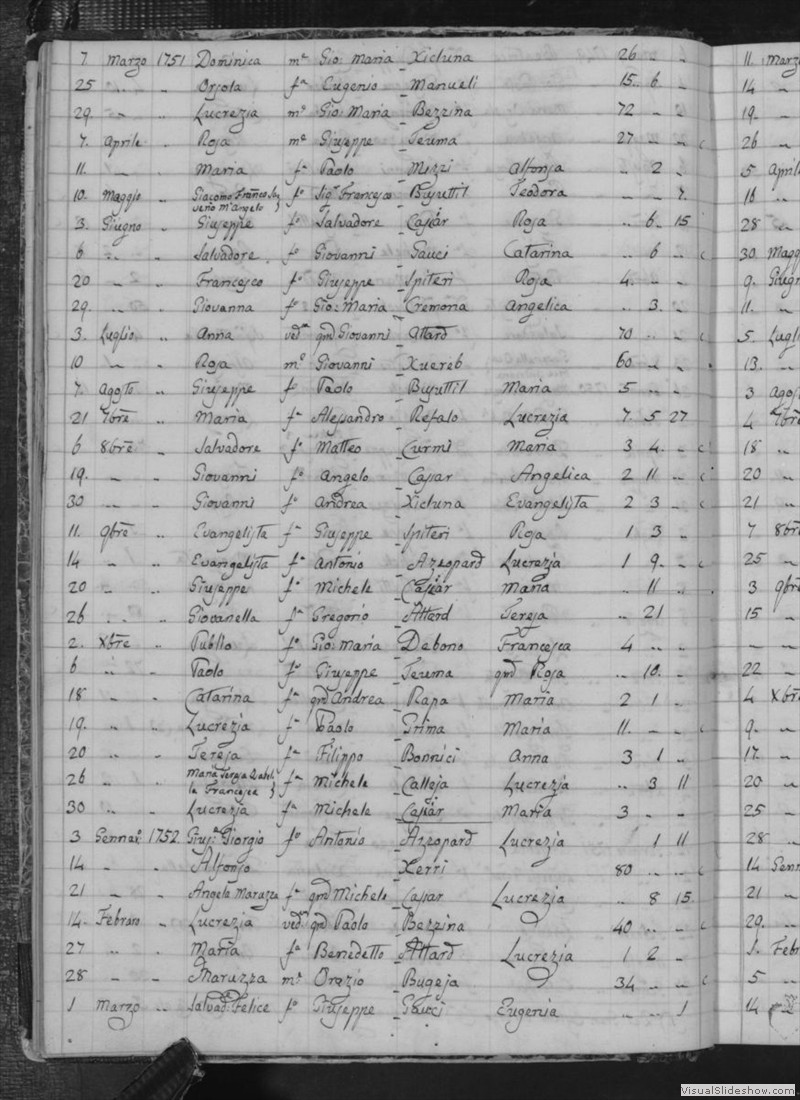 7. Marzo 1751 Dominica mᵉ Gio: Maria Xicluna 26 .. ..
25 .. .. Orsola fᵃ Eugenio Manueli 15 .. 6 ..
29. .. .. Lucrezia mᵉ Gio: Maria Bezzina 72 .. ..
7. Aprile .. Rosa mᵉ Giuseppe Teuma 27 .. .. c
11. .. .. Maria fᵃ Paolo Mizzi Alfonsa .. 2 ..
10. Maggio .. Giacomo Franco fº Sigʳ Francesco Busuttil Teodora .. .. 7.
3. Giugno .. Giuseppe fº Salvadore Cassar Rosa .. 6 .. 15
6 .. .. Salvadore fº Giovanni Gauci Catarina .. 6 .. c
20 .. .. Francesco fº Giuseppe Spiteri Rosa 4. .. ..
29. .. .. Giovanna fᵃ Gio: Maria Cremona Angelica .. 3. ..
3. Luglio .. Anna vedᵃ qm̃ Giovanni Attard 70 .. .. c
10 .. .. Rosa mᵉ Giovanni Xuereb 60 .. ..
7. Agosto .. Giuseppe fº Paolo Busuttil Maria 5 .. ..
21 7bre .. Maria fᵃ Alessandro Refalo Lucrezia 7. 5 27
6 8bre .. Salvadore fº Matteo Curmi Maria 3 4. .. c
19. .. .. Giovanni fº Angelo Cassar Angelica 2 11 .. c
30 .. .. Giovanni fº Andrea Xicluna Evangelista 2 3 .. c
11. 9bre .. Evangelista fᵃ Giuseppe Spiteri Rosa 1 3 ..
14 .. .. Evangelista fᵃ Antonio Azeopard Lucrezia 1 9. .. c
20 .. .. Giuseppe fº Michele Cassar Maria .. 11 ..
26 .. .. Giovanella fᵃ Gregorio Attard Teresa .. 21
2. Xbre .. Publio fº Gio: Maria Debono Francesca 4 .. ..
6 .. .. Paolo fº Giuseppe Teuma qm̃ Rosa .. 10. ..
18 .. .. Catarina fᵃ qm̃ Andrea Rapa Maria 2 1 ..
19. .. .. Lucrezia fᵃ Paolo Grima Maria 11. .. .. c
20 .. .. Teresa fᵃ Filippo Bonnici Anna 3 1 ..
26 .. .. Maria Teresa fᵃ Michele Calleja Lucrezia .. 3 11
la Francesca
30 .. .. Lucrezia fᵃ Michele Cassar Maria 3 .. ..
3 Gennar 1752 Gius: Giorgio fº Antonio Azeopard Lucrezia 1 11
14 .. .. Alfonso Xerri 80 .. .. c
21 .. .. Angela Maruzza fᵃ qm̃ Michele Cassar Lucrezia .. 8 15
14. Febraro .. Lucrezia vedᵃ qm̃ Paolo Bezzina 40 .. .. c
27 .. .. Maria fᵃ Benedetto Attard Lucrezia 1 2 ..
28 .. .. Maruzza mᵉ Orazio Bugeja 34 .. .. c
1 Marzo .. Salvad: Felice fº Giuseppe Gauci Eugenia .. .. 1
11. Marzo
14 ..
19. ..
26 ..
5 Aprile
16 ..
28 ..
30 Magg
9. Giugn
11. ..
5. Lugli
13. ..
3 Agost
4 7bre
18 ..
20 ..
21 ..
7 8bre
25 ..
3 9bre
15 ..
22 ..
4 Xbre
9. ..
17. ..
20 ..
25 ..
28 ..
14 Genn
21 ..
29. ..
1. Febr
5 ..
14
VisualSlideshow.com